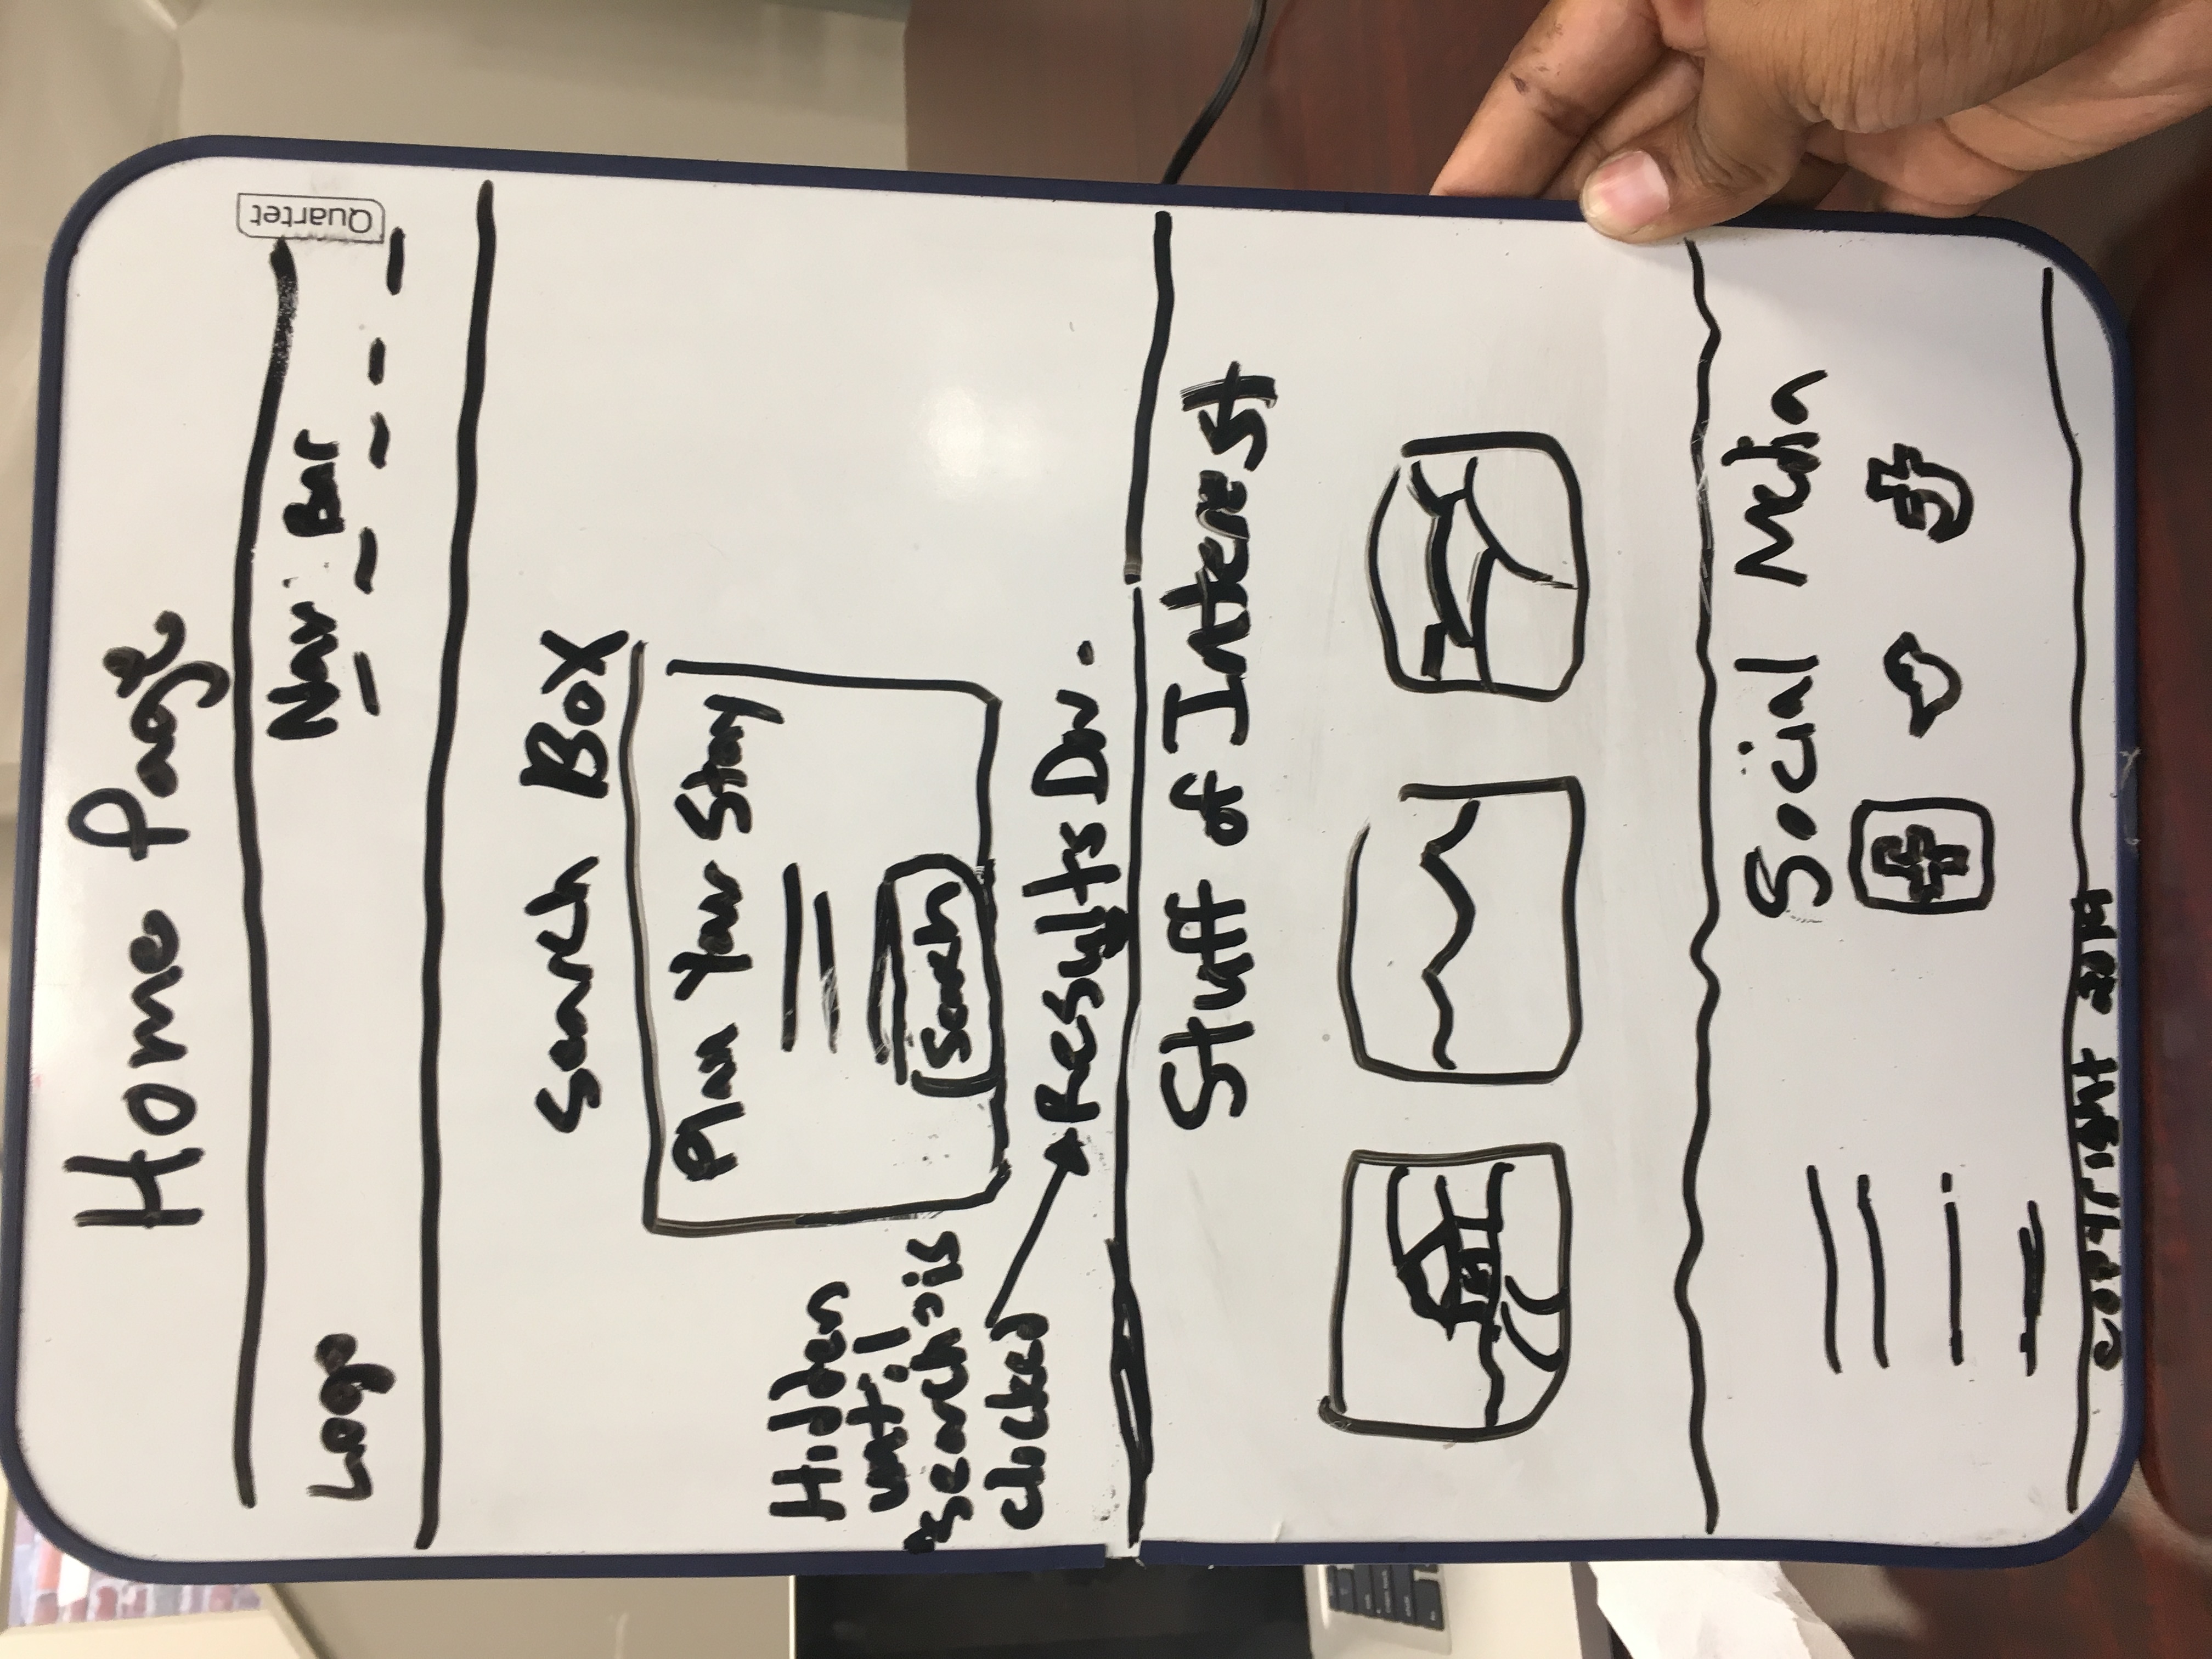 Home Page
Quartet
Logo
Nav Bar
Search Box
Plan Your Stay
Hidden
until
"search" is
clicked
Search
Results Div.
Stuff of Interest
Social Media
f
copyright 2019